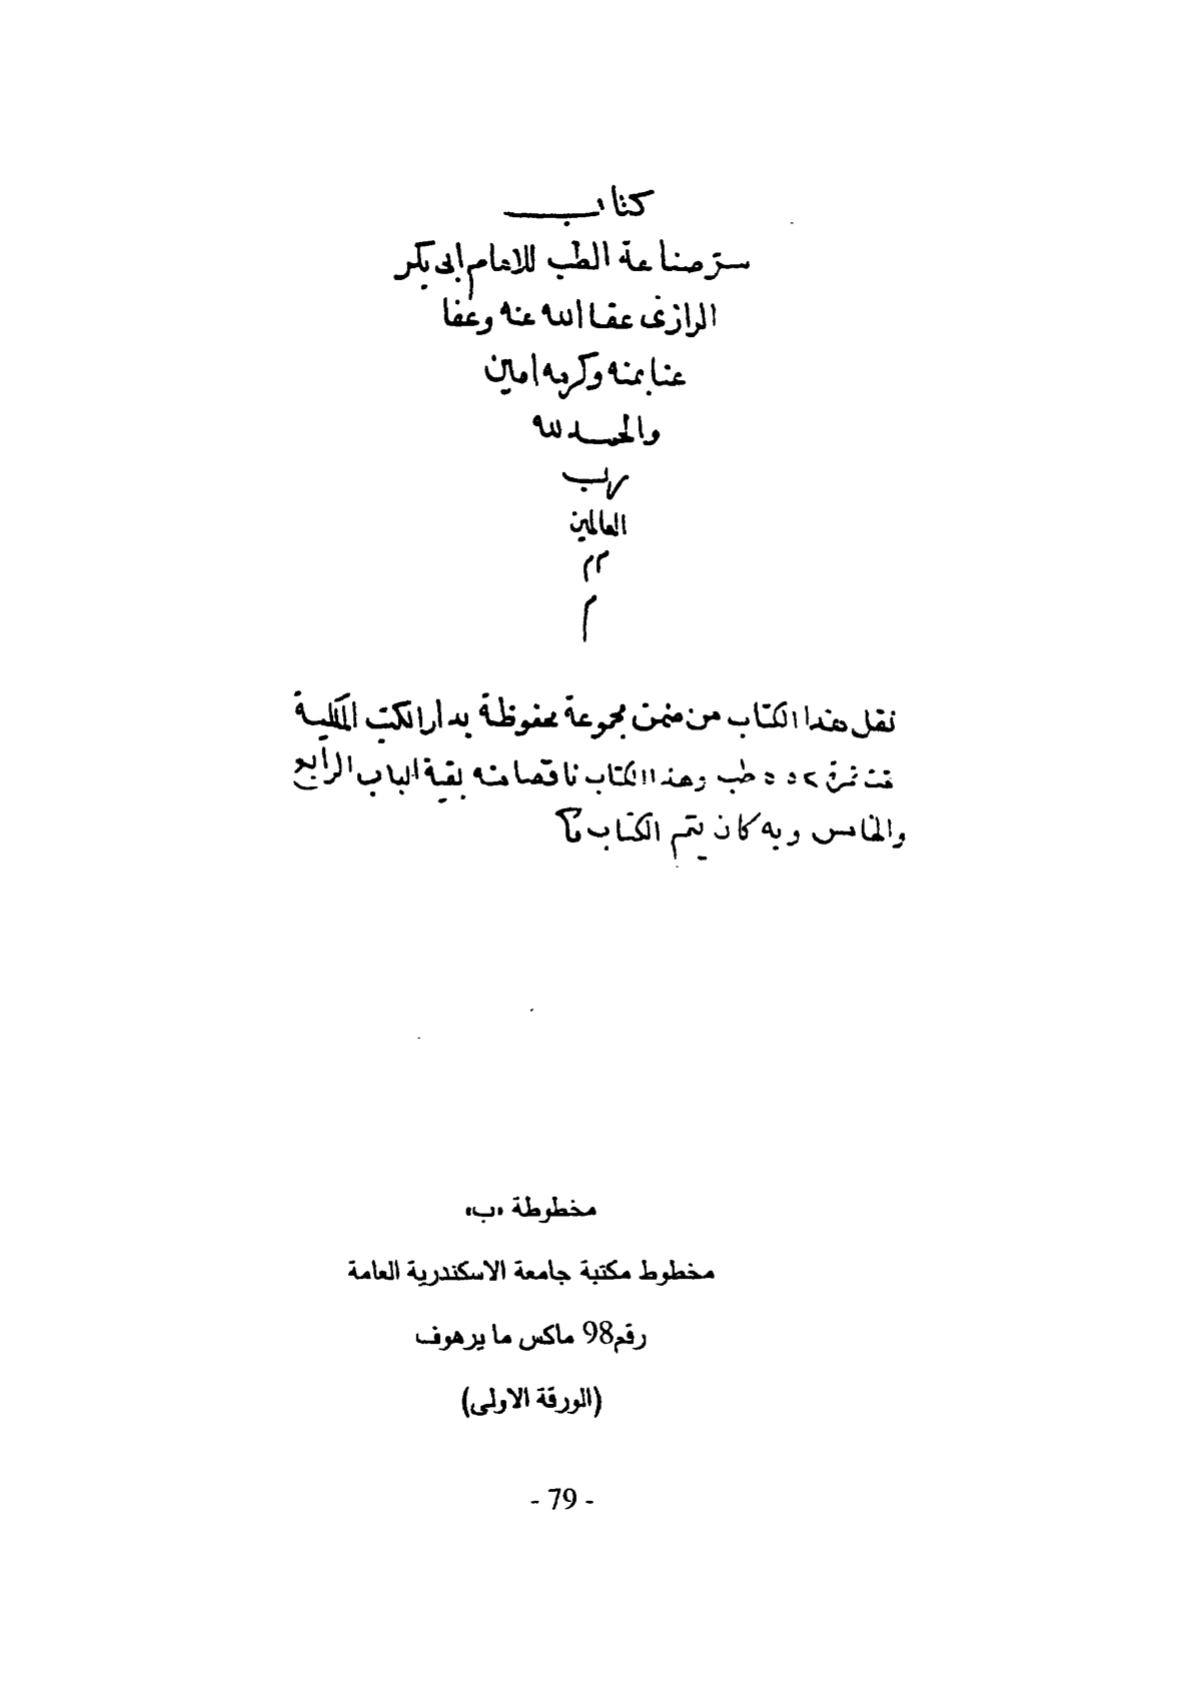 كتاب
سر صناعة الطب للامام ابى بكر
الرازى عفا الله عنه وعفا
عنا بمنه وكرمه امين
والحمد لله
رب
العالمين
م م
م
نقل هذا الكتاب من ضمن مجموعة محفوظة بدار الكتب الملكية
تحت نمرة طب وهذا الكتاب ناقصا منه بقية الباب الرابع
والخامس وبه كان يتم الكتاب
مخطوطة «ب»
مخطوط مكتبة جامعة الاسكندرية العامة
رقم98 ماكس مايرهوف
(الورقة الاولى)
- 79 -